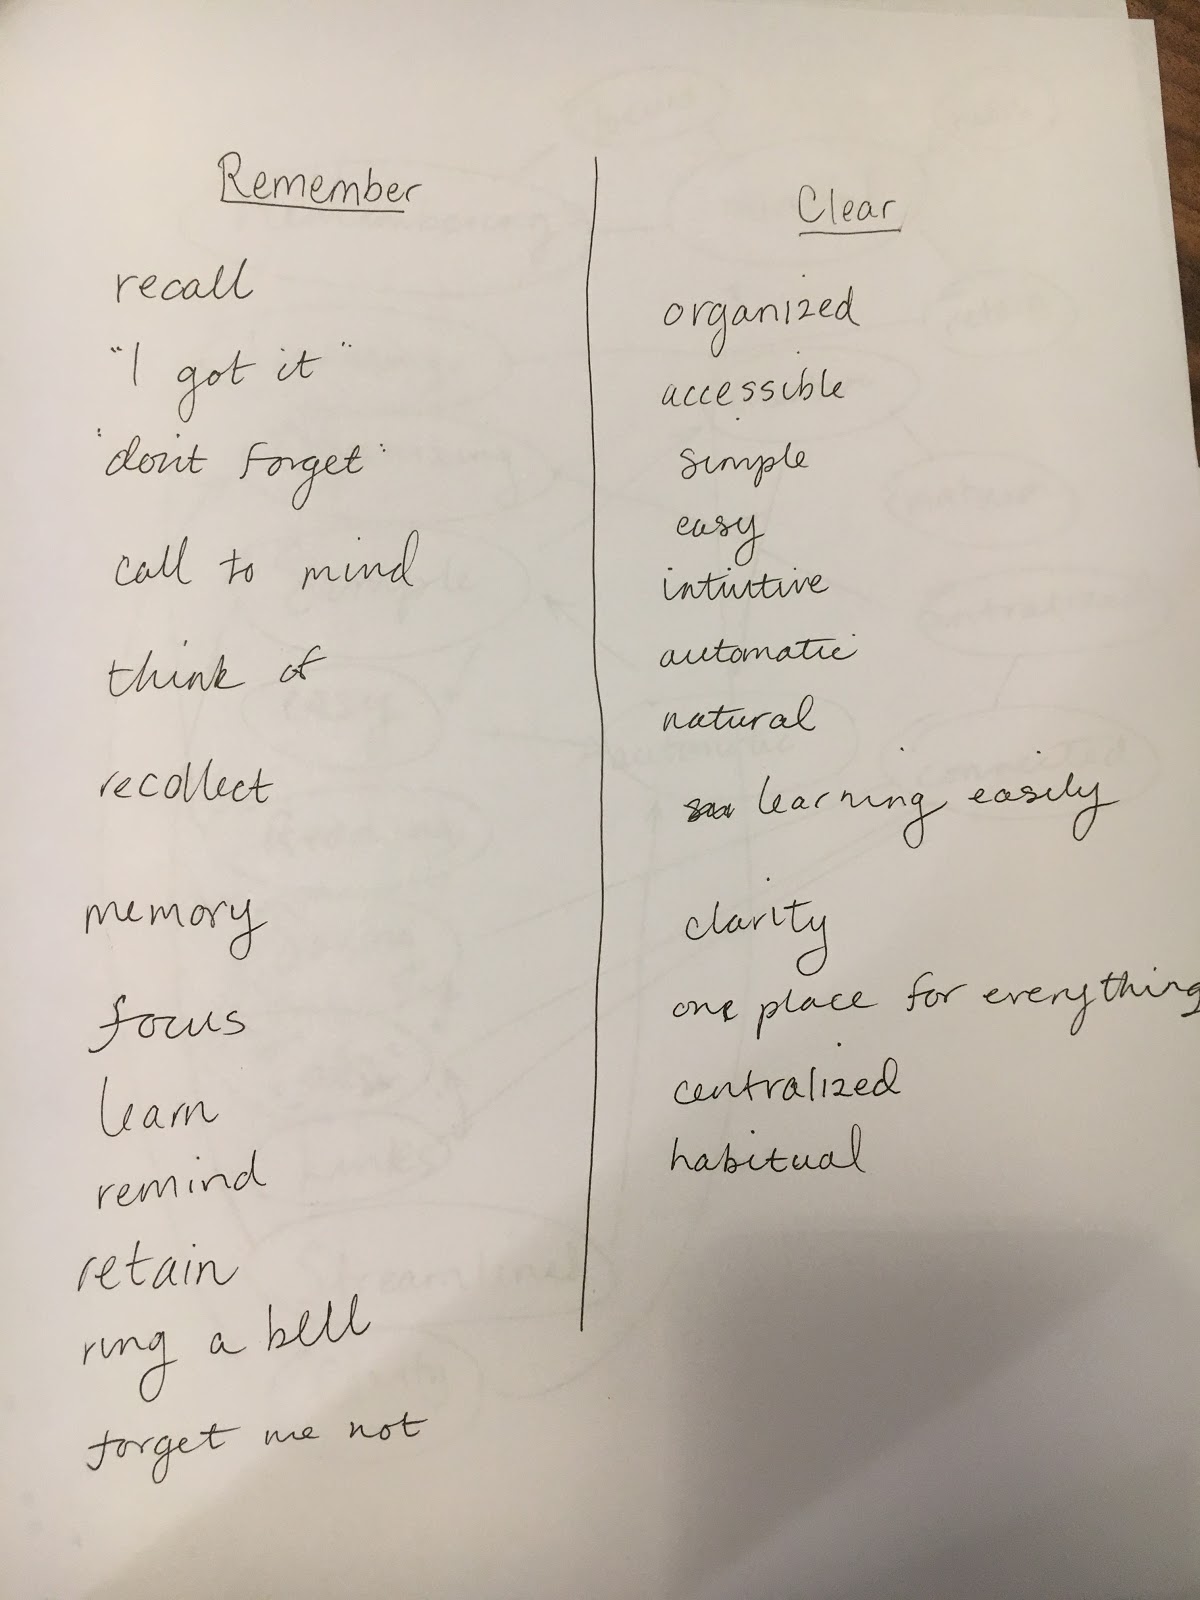 Remember
recall
"I got it"
"don't forget"
call to mind
think of
recollect
memory
focus
learn
remind
retain
ring a bell
forget me not
Clear
organized
accessible
simple
easy
intuitive
automatic
natural
learning easily
clarity
one place for everything
centralized
habitual